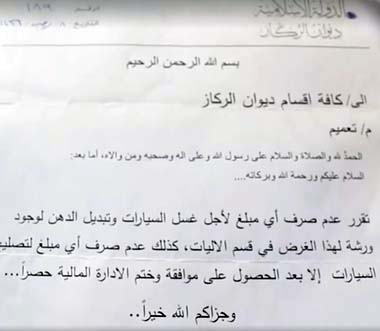 الدولة الإسلامية
ديوان الركاز
الرقم ١٥٩
التاريخ ٨ رجب ١٤٣٦
بسم الله الرحمن الرحيم
الى/ كافة اقسام ديوان الركاز
م/ تعميم
الحمدُ لله والصلاة والسلام على رسول الله وعلى اله وصحبه ومن والاه، أما بعد:
السلام عليكم ورحمة الله وبركاته....
تقرر عدم صرف أي مبلغ لأجل غسل السيارات وتبديل الدهن لوجود
ورشة لهذا الغرض في قسم الاليات، كذلك عدم صرف أي مبلغ لتصليح
السيارات إلا بعد الحصول على موافقة وختم الادارة المالية حصراً...
وجزاكم الله خيراً..